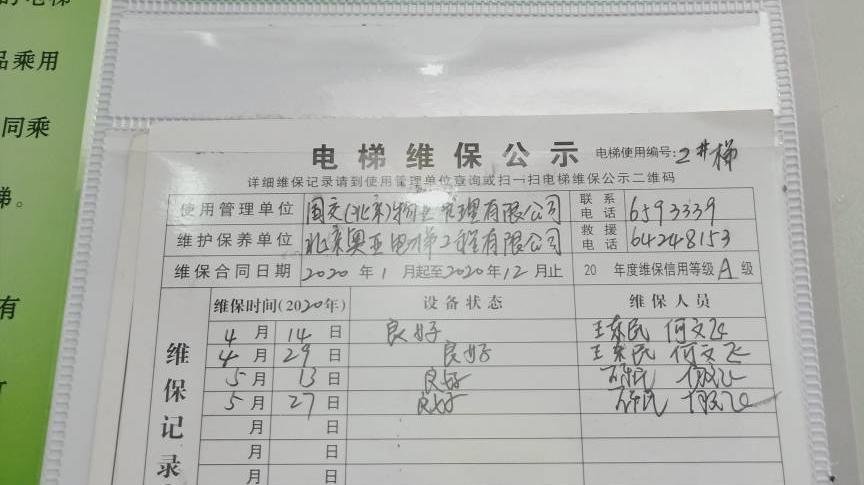 的电梯
品乘用
同乘
梯。
有
电梯维保公示 电梯使用编号:2#梯
详细维保记录请到使用管理单位查询或扫一扫电梯维保公示二维码
使用管理单位 国交(北京)物业管理有限公司 联系电话 6593339
维护保养单位 北京奥亚电梯工程有限公司 救援电话 64248153
维保合同日期 2020年1月起至2020年12月止 20 年度维保信用等级A级
维保记录
维保时间(2020年) 设备状态 维保人员
4月14日 良好 王东民 何文飞
4月29日 良好 王东民 何文飞
5月13日 良好
5月27日 良好
月 日
月 日
月 日